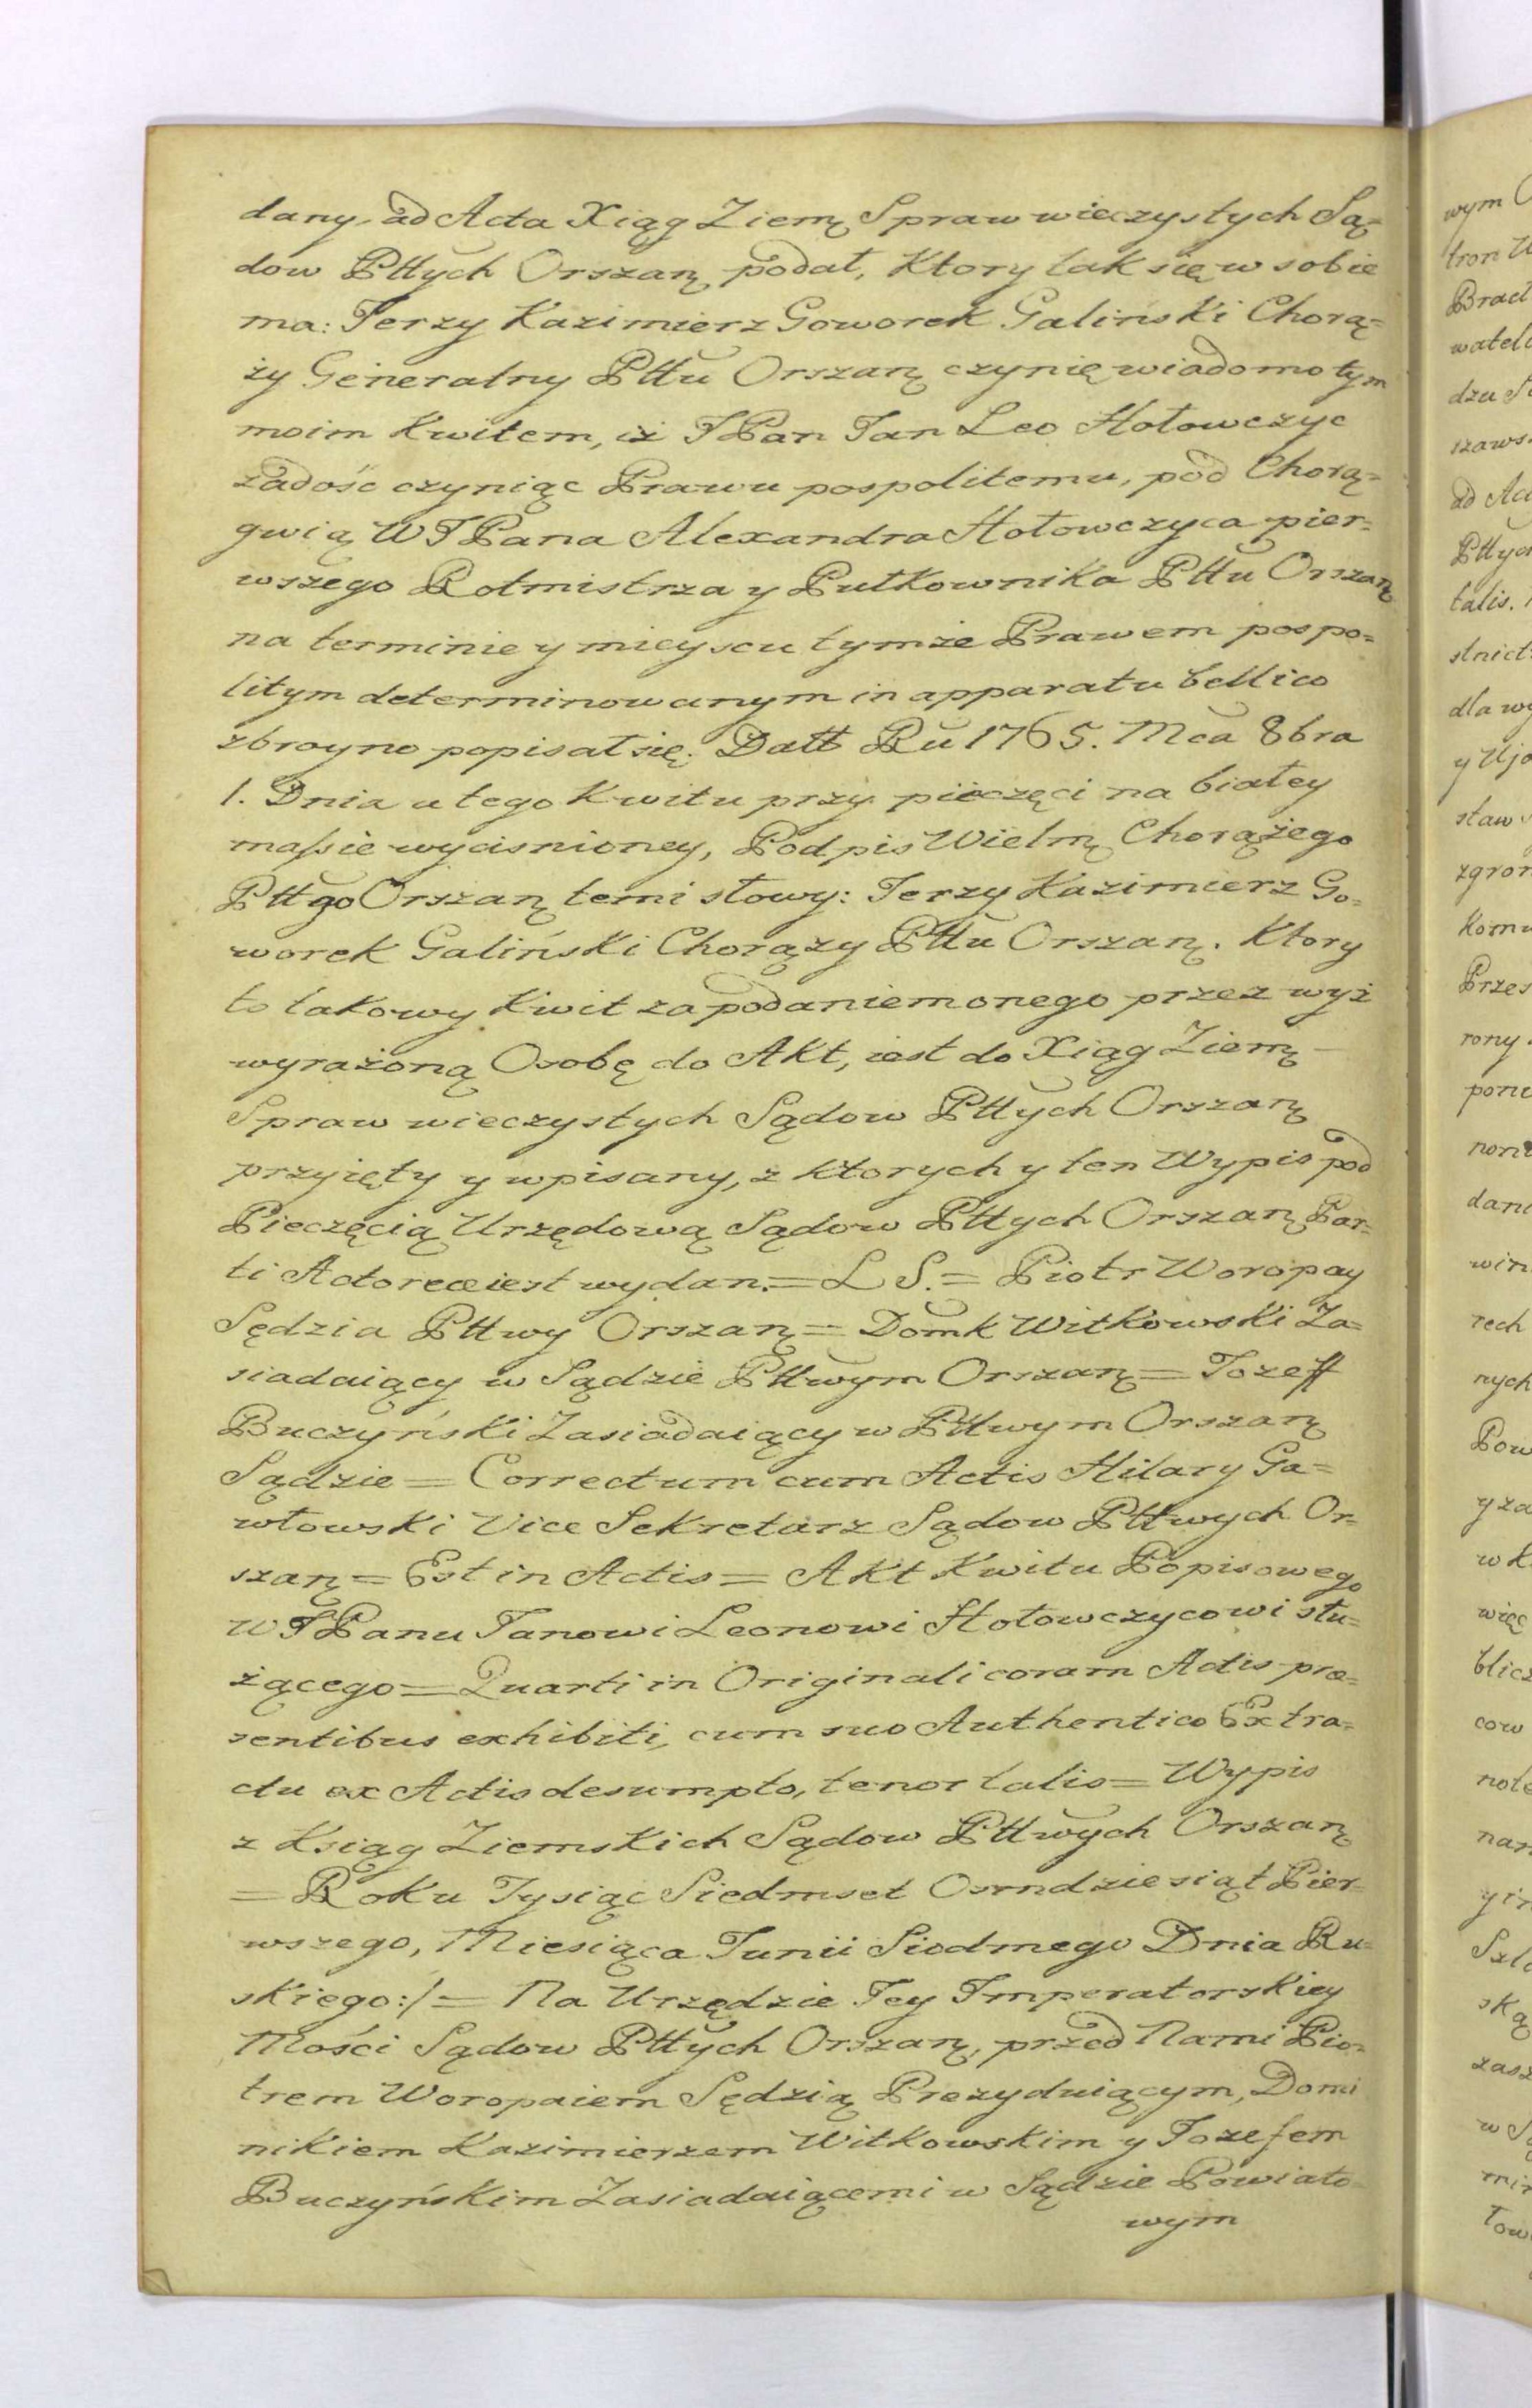 dany, ad Acta Xiąg Ziemą Spraw wieczystych Są=
dow Pttych Orszaną podał, Ktory tak się w sobie
ma: Jerzy Kazimierz Goworek Galinski Chorą=
ży Generalny Pttu Orszaną czynię wiadomo tym
moim Kwitem, iż JPan Jan Leo Hołowczyc
zadość czyniąc Prawu pospolitemu, pod Chorą=
gwią WJPana Alexandra Hołowczyca pier=
wszego Rotmistrza y Pułkownika Pttu Orszaną
na terminie y mieyscu tymże Prawem pospo=
litym determinowanym in apparatu bellico
zbroyno popisał się. Datt Ru 1765. Mca 8bra
1. Dnia u tego Kwitu przy pieczęci na białey
massie wycisnioney, Podpis Wielmą Chorążego
Pttgo Orszaną temi słowy: Jerzy Kazimierz Go=
worek Galiński Chorąży Pttu Orszaną. Ktory
to takowy Kwit za podaniem onego przez wyż
wyrażoną Osobę do Akt, iest do Xiąg Ziemą
Spraw wieczystych Sądow Pttych Orszaną
przyięty y wpisany, z ktorych y ten Wypis pod
Pieczęcią Urzędową Sądow Pttych Orszaną Par=
ti Actoreæ iest wydan. = L S. = Piotr Woropay
Sędzia Pttwy Orszaną = Domk Witkowski Za=
siadaiący w Sądzie Pttwym Orszaną = Jozeff
Buczyński Zasiadaiący w Pttwym Orszaną
Sądzie = Correctum cum Actis Hilary Ga=
włowski Vice Sekretarz Sądow Pttwych Or=
szaną = Est in Actis = AKt Kwitu Popisowego
WJPanu Janowi Leonowi Hołowczycowi słu=
żącego = Quarti in Originali coram Actis præ=
sentibus exhibiti, cum suo Authentico Extra=
ctu ex Actis desumpto, tenor talis = Wypis
z Ksiąg Ziemskich Sądow Pttwych Orszaną
= Roku Tysiąc Siedmset Osmdziesiąt Pier=
wszego, Miesiąca Junii Siodmego Dnia Ru=
skiego:/= Na Urzędzie Jey Imperatorskiey
Mości Sądow Pttych Orszaną, przed Nami Pio=
trem Woropaiem Sędzią Prezyduiącym, Domi
nikiem Kazimierzem Witkowskim y Jozefem
Buczyńskim Zasiadaiącemi w Sądzie Powiato
wym